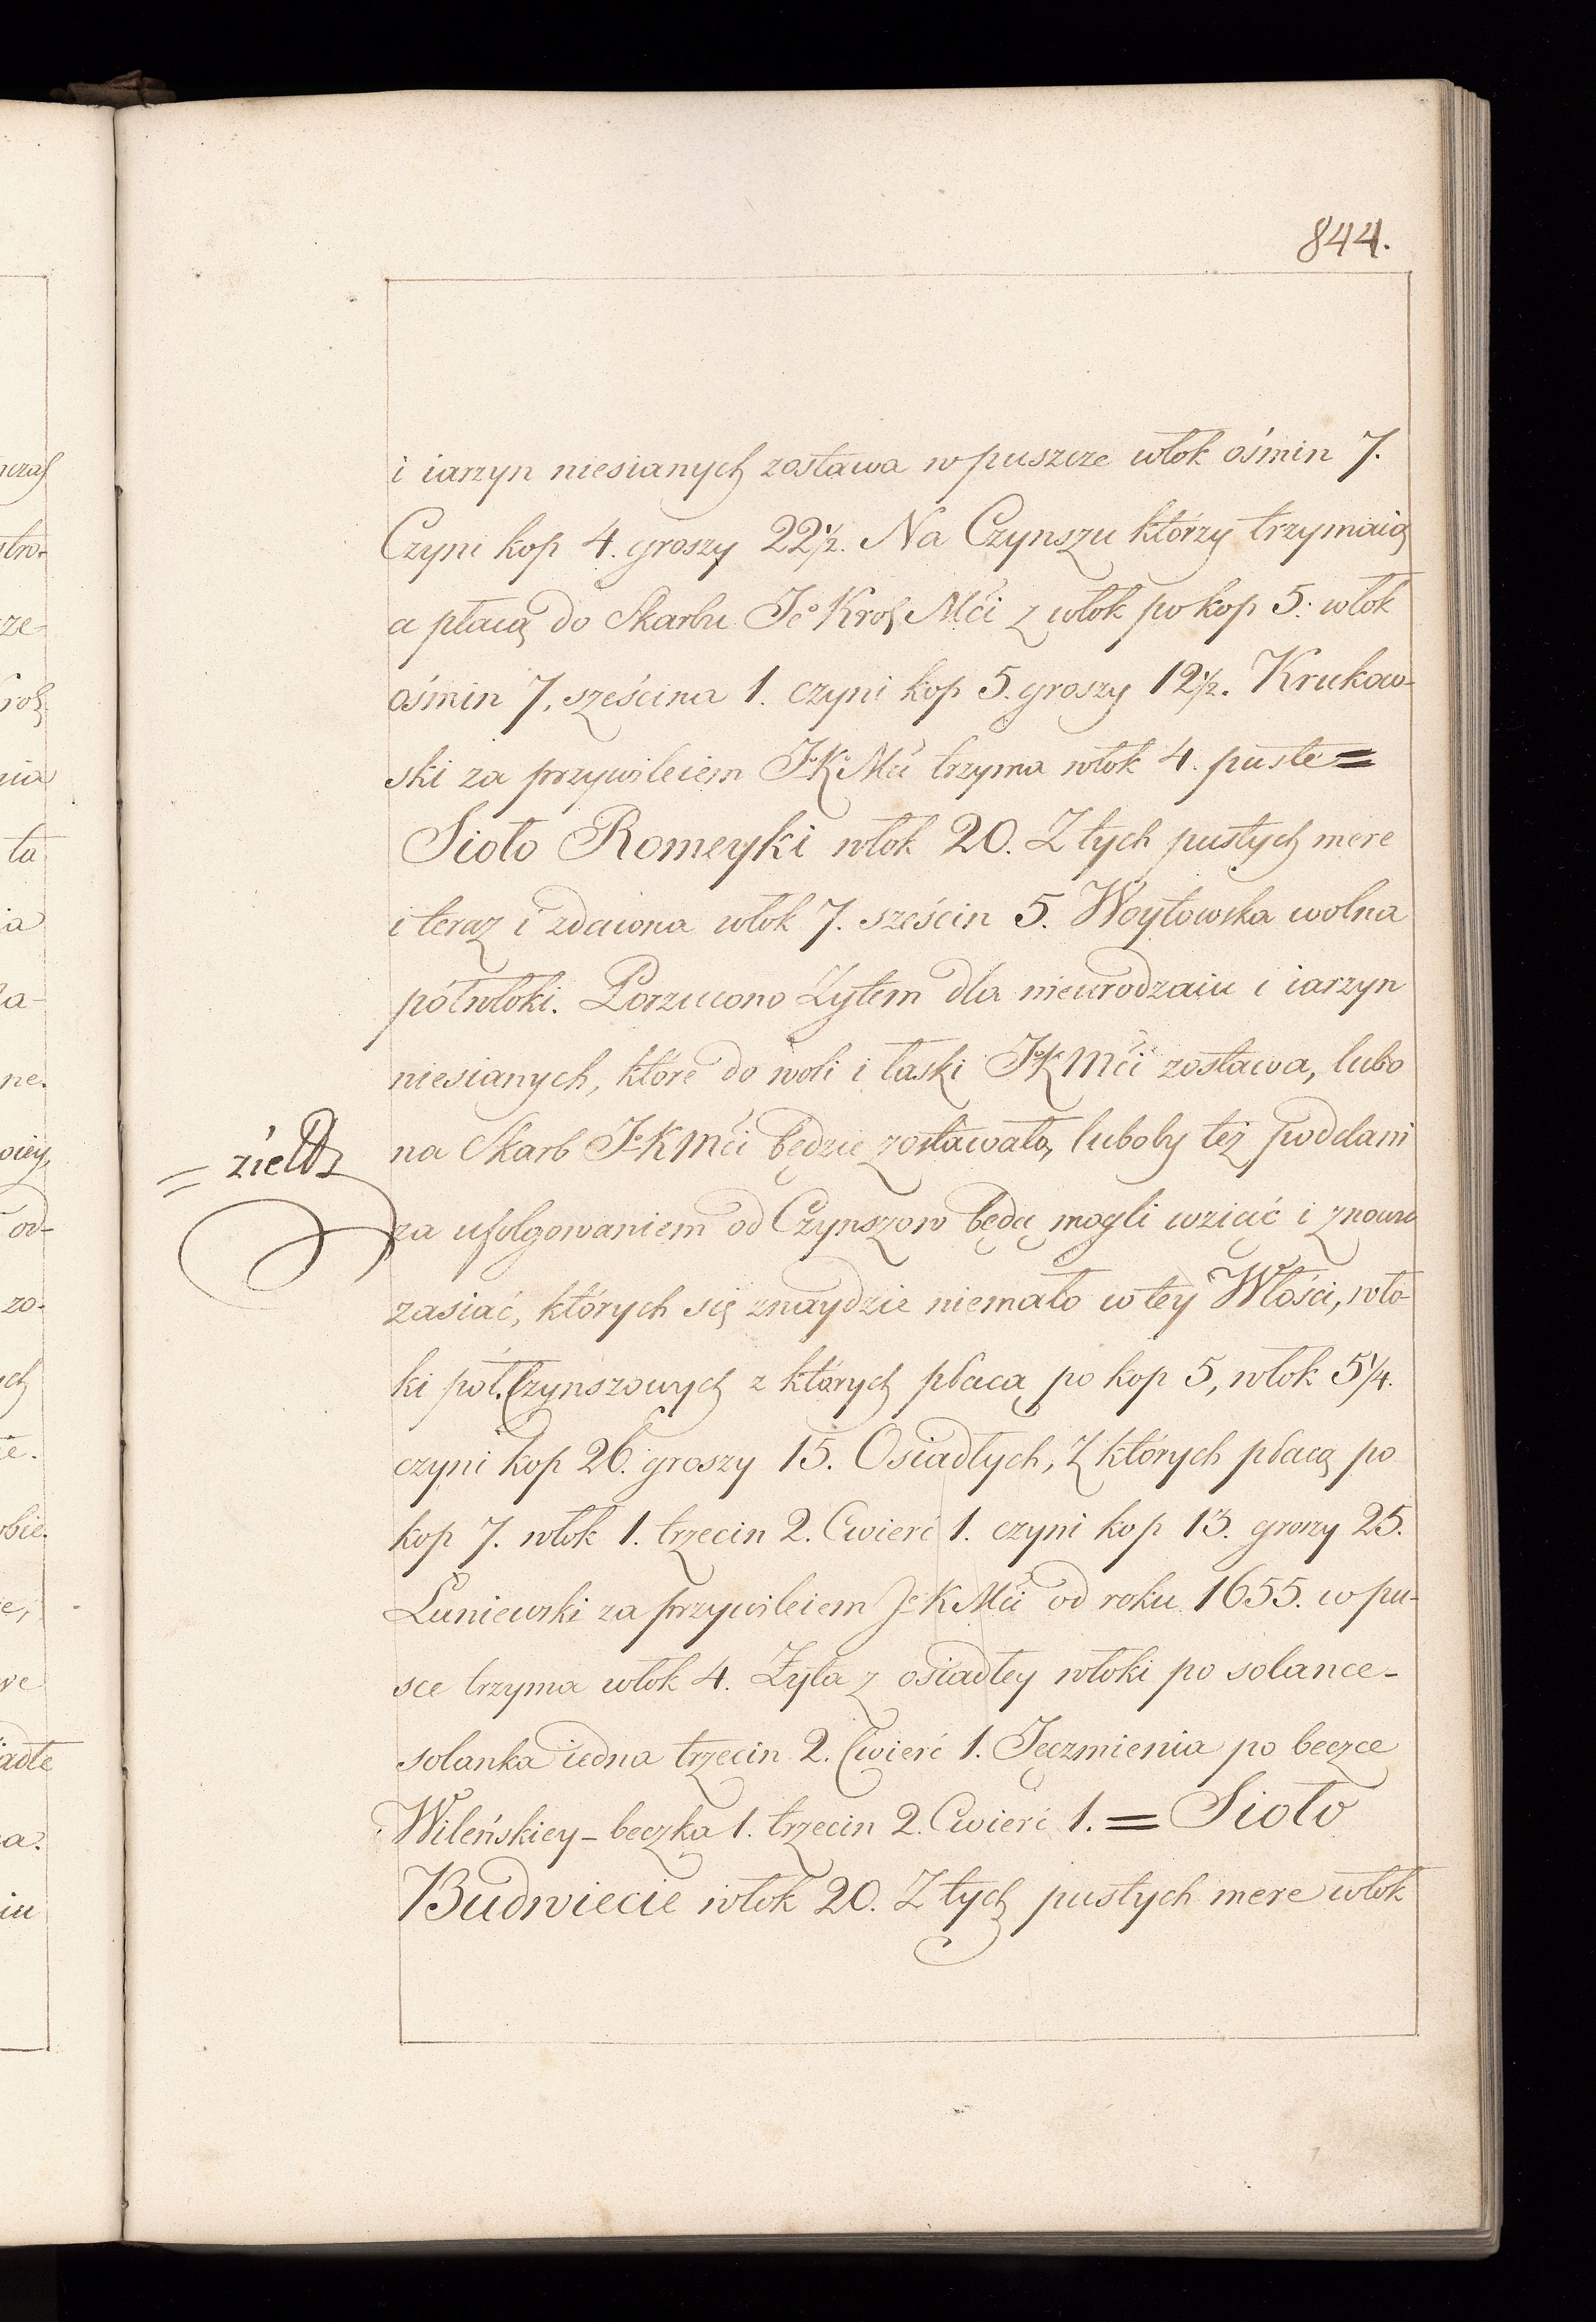 844.
i iarzyn niesianych zostawa w puszcze włok ośmin 7.
Czyni kop 4. groszy 22½. Na Czynszu którzy trzymaią
a płacą do Skarbu Jeº Krol Mći z włok po kop 5: włok
ośmin 7, sześcina 1. czyni kop 5. groszy 12½. Krukow-
ski za przywileiem JºKMći trzyma włok 4. puste =
Sioło Romeyki włok 20. Z tych pustych mere
i teraz i zdawna włok 7. sześcin 5. Woytowska wolna
pół włoki. Porzucono Żytem dla nieurodzaiu i iarzyn
niesianych, które do woli i łaski JºKMći zostawa, lubo
na Skarb JºKMći będzie zostawało, luboby też poddani
= zielb
za ufolgowaniem od Czynszow będą mogli wziąć i znowu
zasiać, których się znaydzie niemało w tey Włości, wło-
ki pół. Czynszowych z których płacą po kop 5, włok 5¼.
czyni kop 26. groszy 15. Osiadłych, z których płacą po
kop 7. włok 1. trzecin 2. Cwierć 1. czyni kop 13. grozy 25.
Łuniewski za przywileiem JeKMći od roku 1655. w pu-
sce trzyma włok 4. Żyta z osiadłey włoki po solance -
solanka iedna trzecin 2. Cwierć 1. Jęczmienia po beczce
Wileńskiey - beczka 1. trzecin 2. Cwierć 1. = Sioło
Budwiecie włok 20. Z tych pustych mere włok